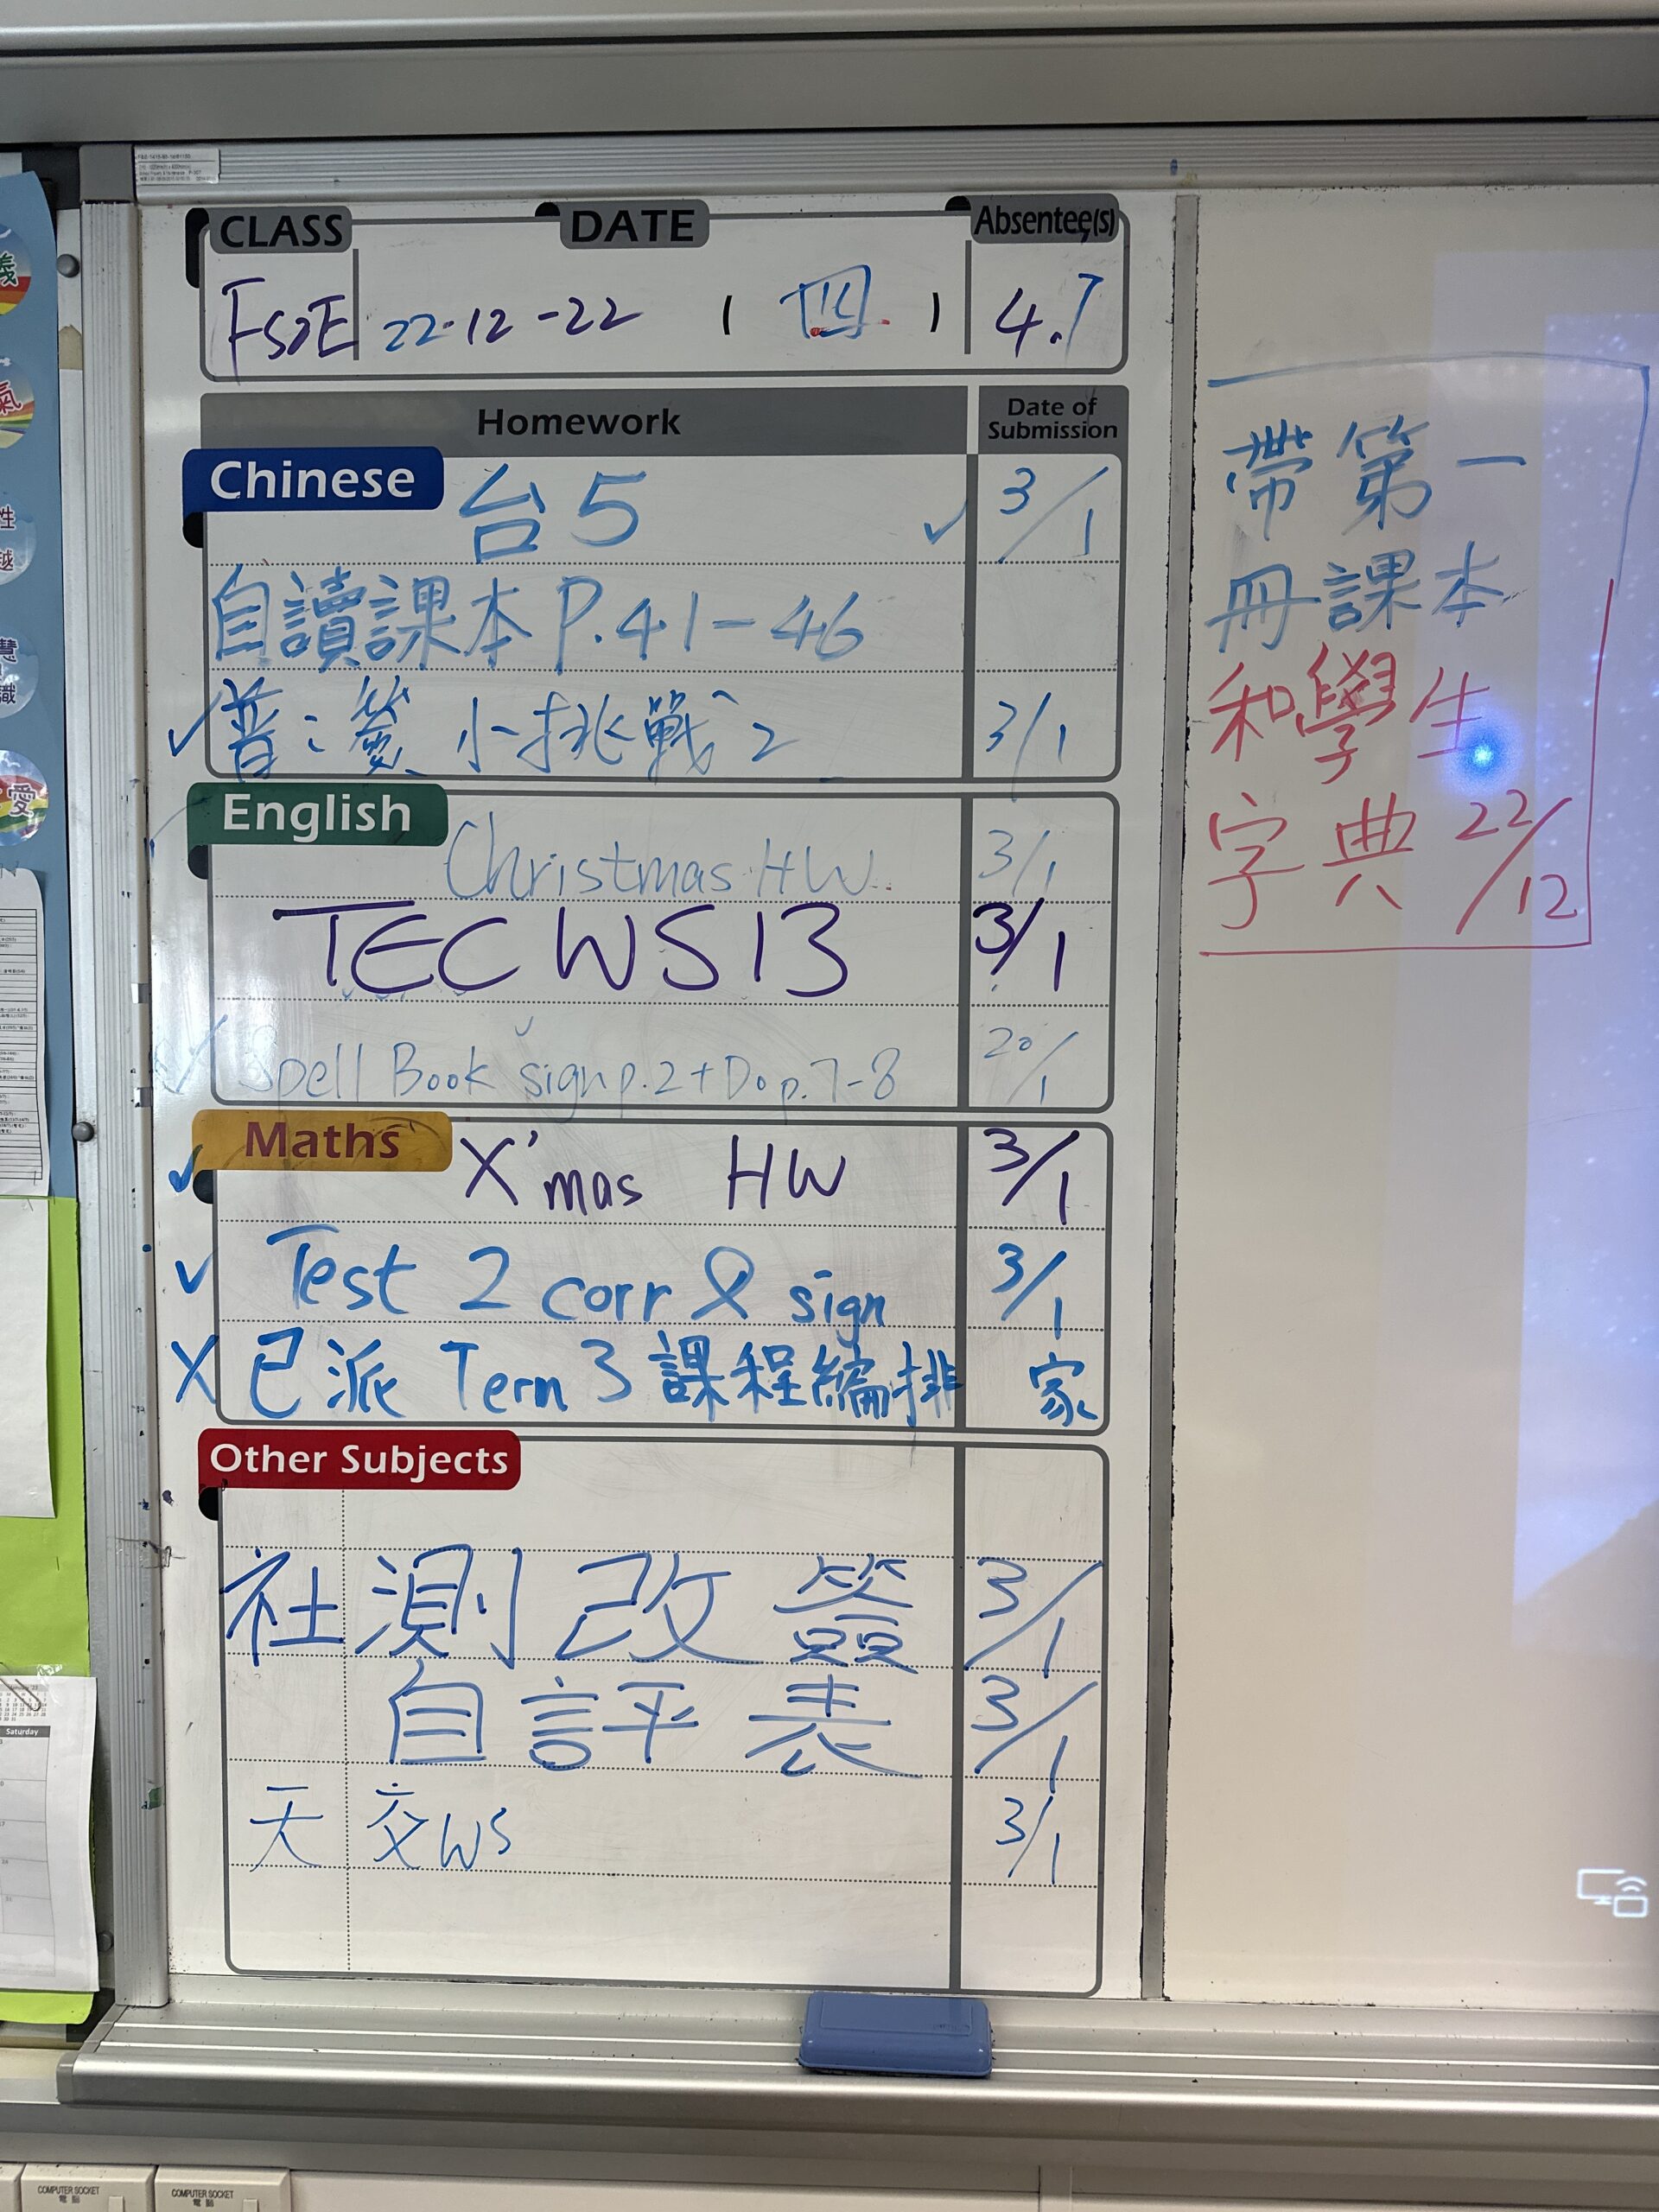 CLASS DATE Absentee(s)
22-12-22 ( 四 ) 4.7
Homework Date of Submission
Chinese 台5 ✓ 3/1
自讀課本 P.41-46
✓ 普: 小挑戰2 3/1
English Christmas HW 3/1
TEC WS 13 3/1
✓ Spell Book sign p.2 + Do p.7-8 20/1
Maths
✓ X'mas HW 3/1
✓ Test 2 corr & sign 3/1
X 已派 Term 3 課程編排 家
Other Subjects
社 測改簽 3/1
自評表 3/1
天 交WS 3/1
帶第一
冊課本
和學生
字典 22/12
義
氣
性
越
慧
識
愛
Saturday
COMPUTER SOCKET
電腦
COMPUTER SOCKET
電腦